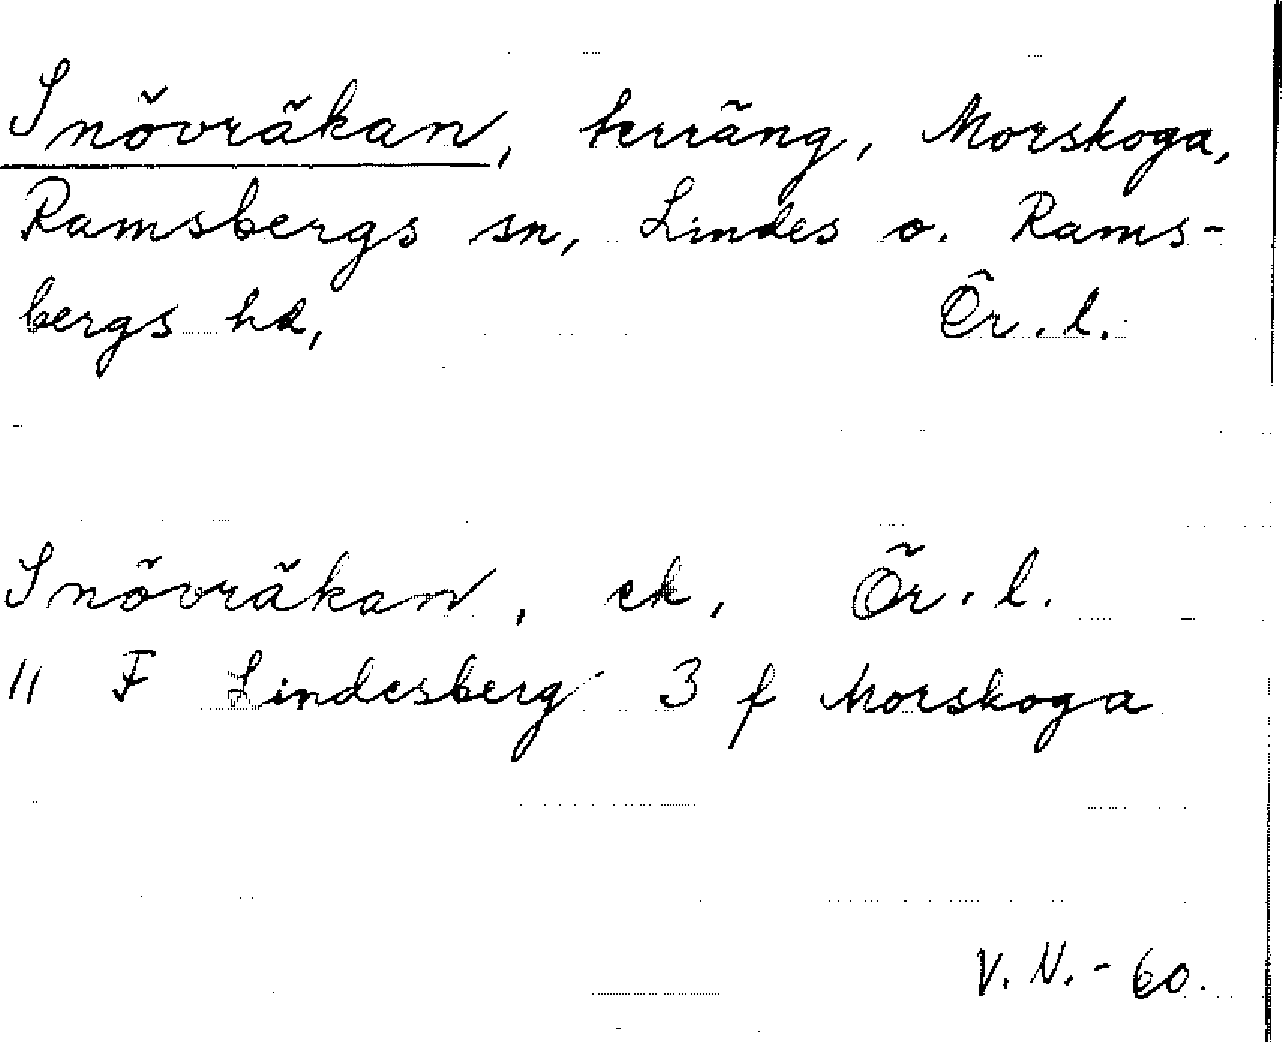 Snövräkan, terräng, Morskoga,
Ramsbergs sn, Lindes o. Rams-
bergs hd, Ör. l.
Snövräkan, ek, Ör. l.
11 F Lindesberg 3 f Morskoga
V. N. - 60.